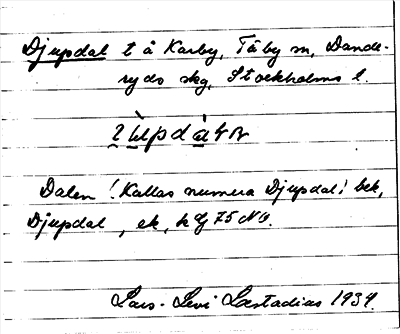 Djupdal t å Karby, Täby sn, Dande-
ryds skg, Stockholms l.
Dalen! Kallas numera Djupdal! bek,
Djupdal, ek, k bl 75 NO.
Lars-Levi Læstadius 1934.